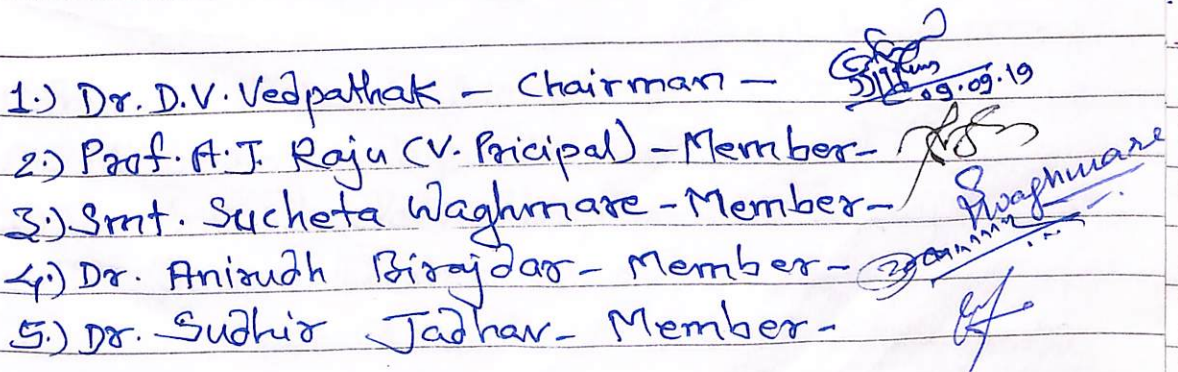 1.) Dr. D.V. Vedpathak - Chairman - 09.09.19
2.) Prof. A.J. Raju (V. Pricipal) - Member -
3.) Smt. Sucheta Waghmare - Member - Swaghmare
4.) Dr. Anirudh Birajdar - Member -
5.) Dr. Sudhir Jadhav - Member -